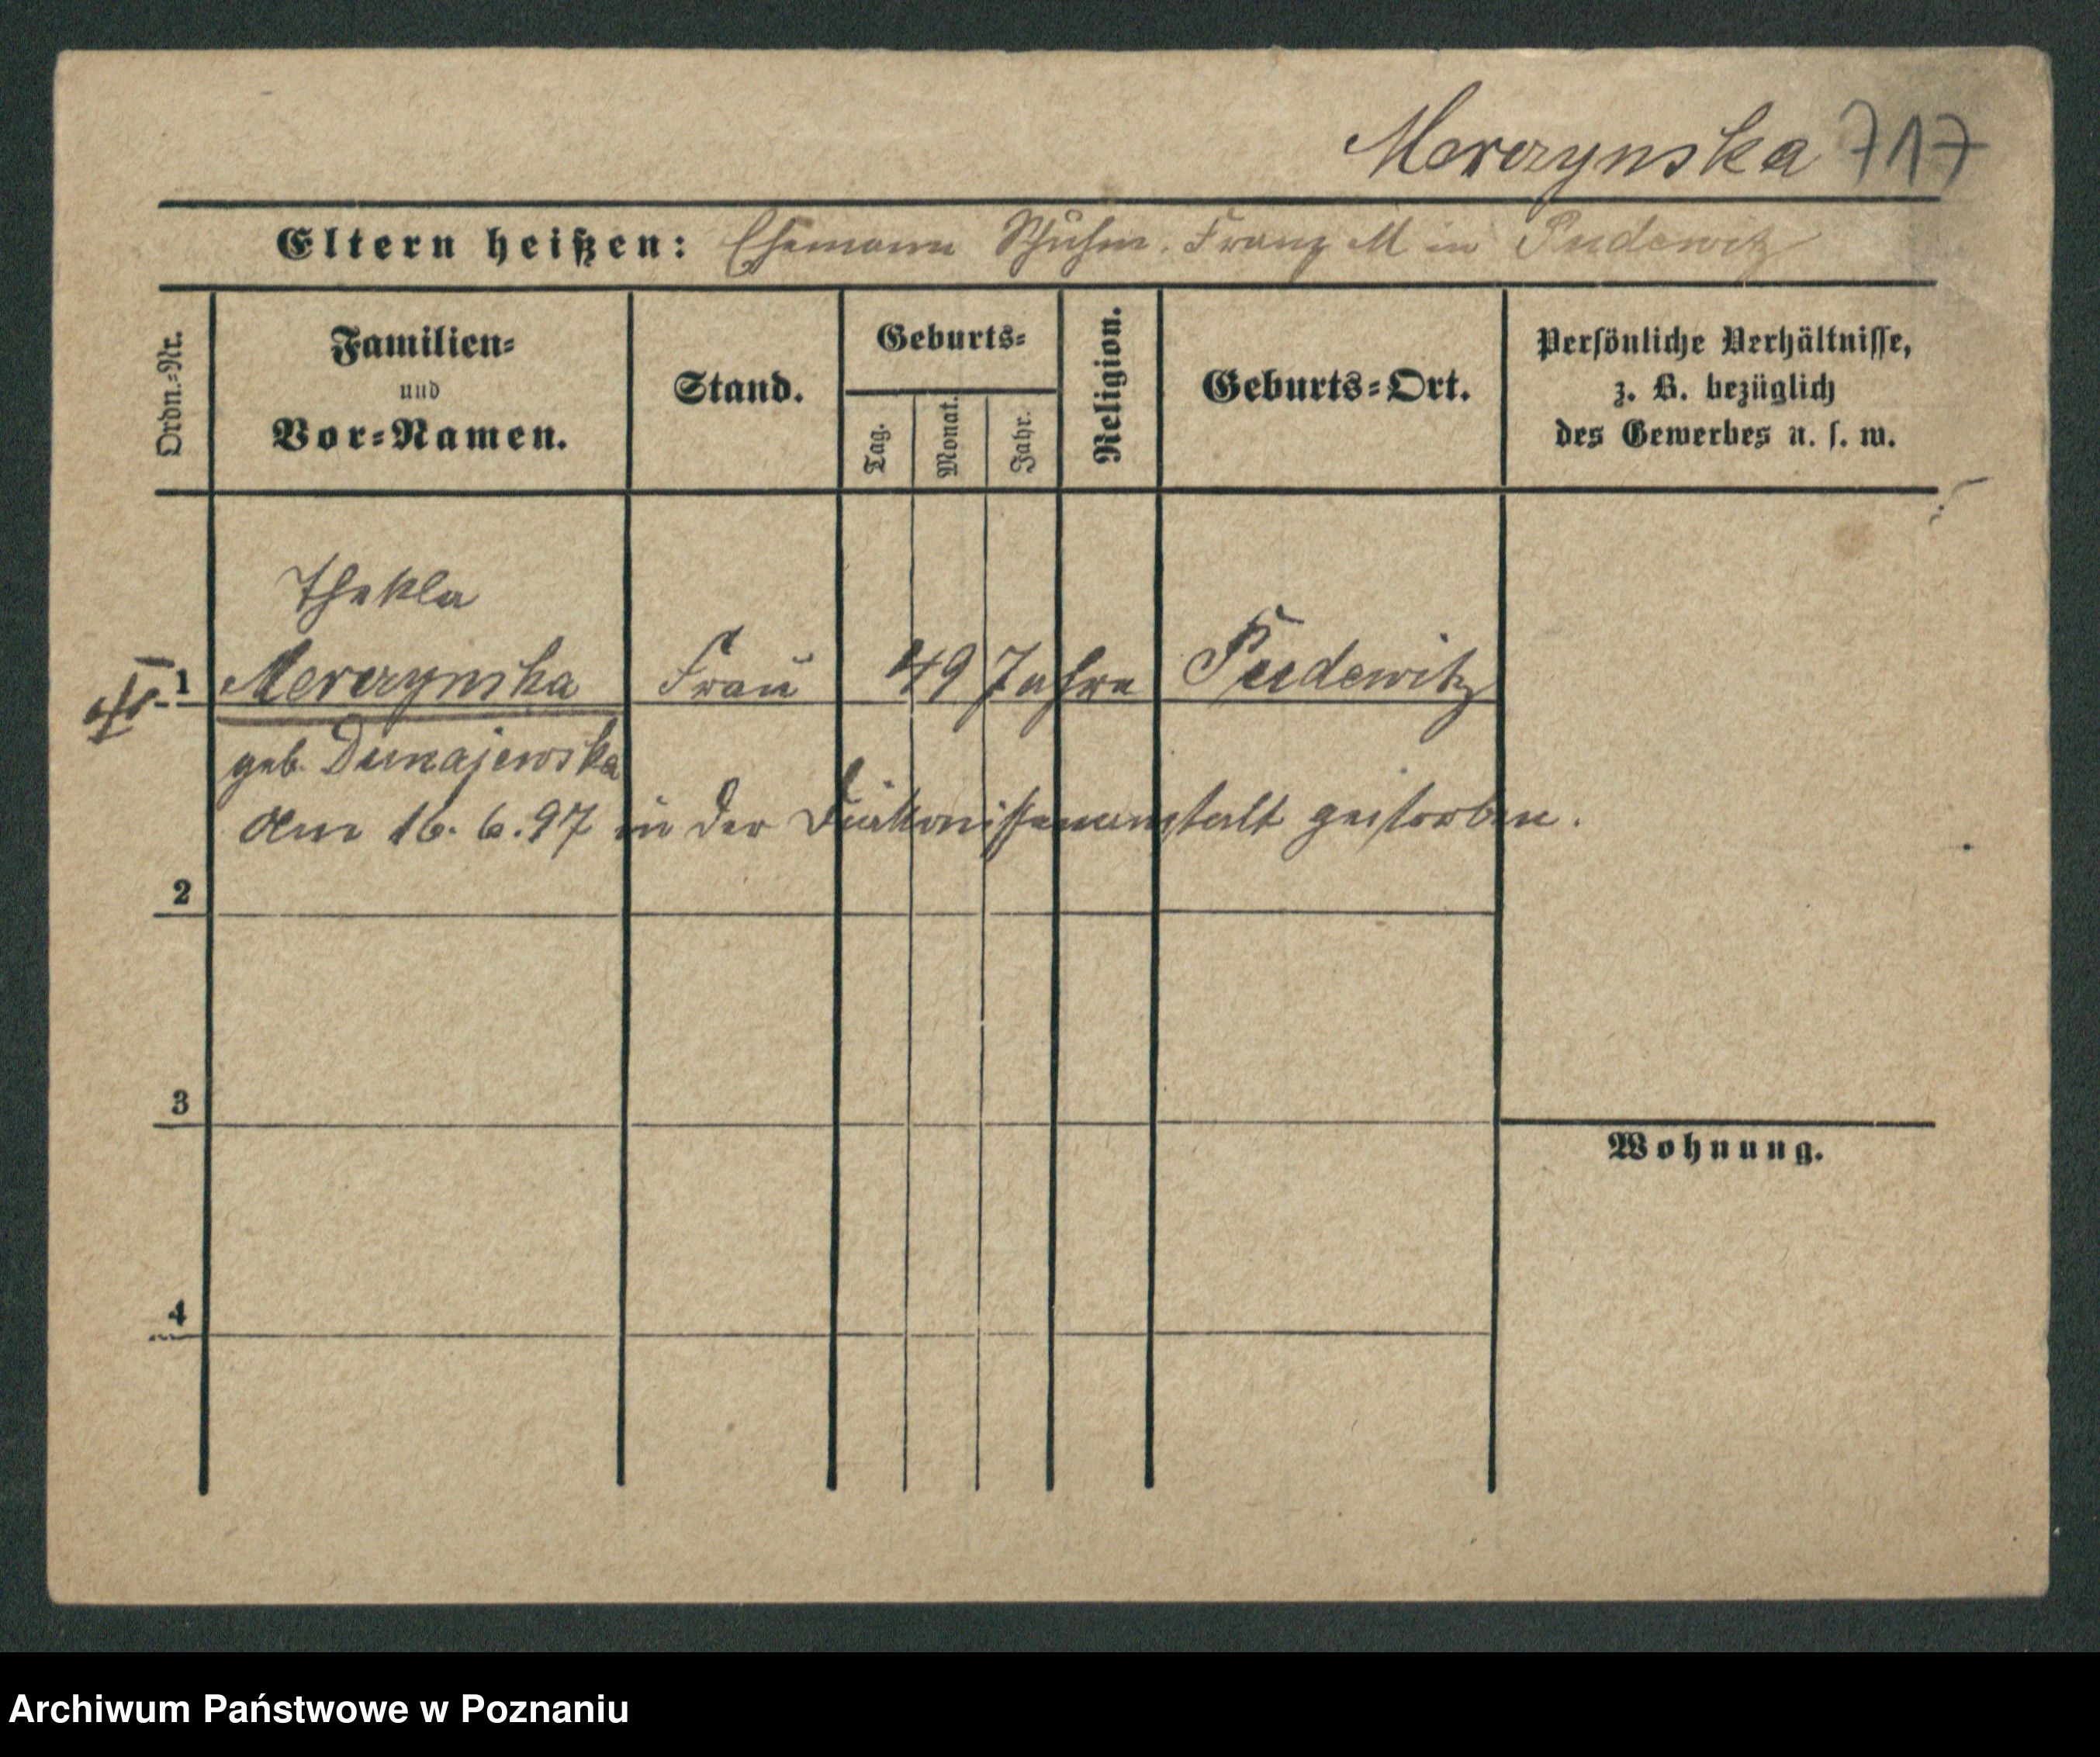 Merczynska 717
Eltern heißen: Ehemann Schuhm. Franz M in Pudewitz
Ordn.=Nr.
Familien=
und
Vor=Namen.
Stand.
Geburts=
Tag.
Monat.
Jahr.
Religion.
Geburts=Ort.
Persönliche Verhältnisse,
z. B. bezüglich
des Gewerbes u. s. w.
Thekla
1 Merczynska Frau 49 Jahre Pudewitz
geb. Dunajewska
Am 16. 6. 97 in der Diakonissenanstalt gestorben.
2
3
Wohnung.
4
Archiwum Państwowe w Poznaniu